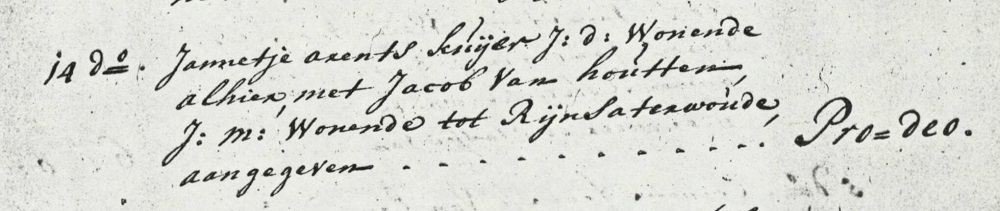 14 do. Jannetje arents Kruijer J: d: Wonende
alhier, met Jacob Van houtten,
J: m: Wonende tot Rijnsaterwoude,
aangegeven - - - - - - - - - - - . Pro=deo.